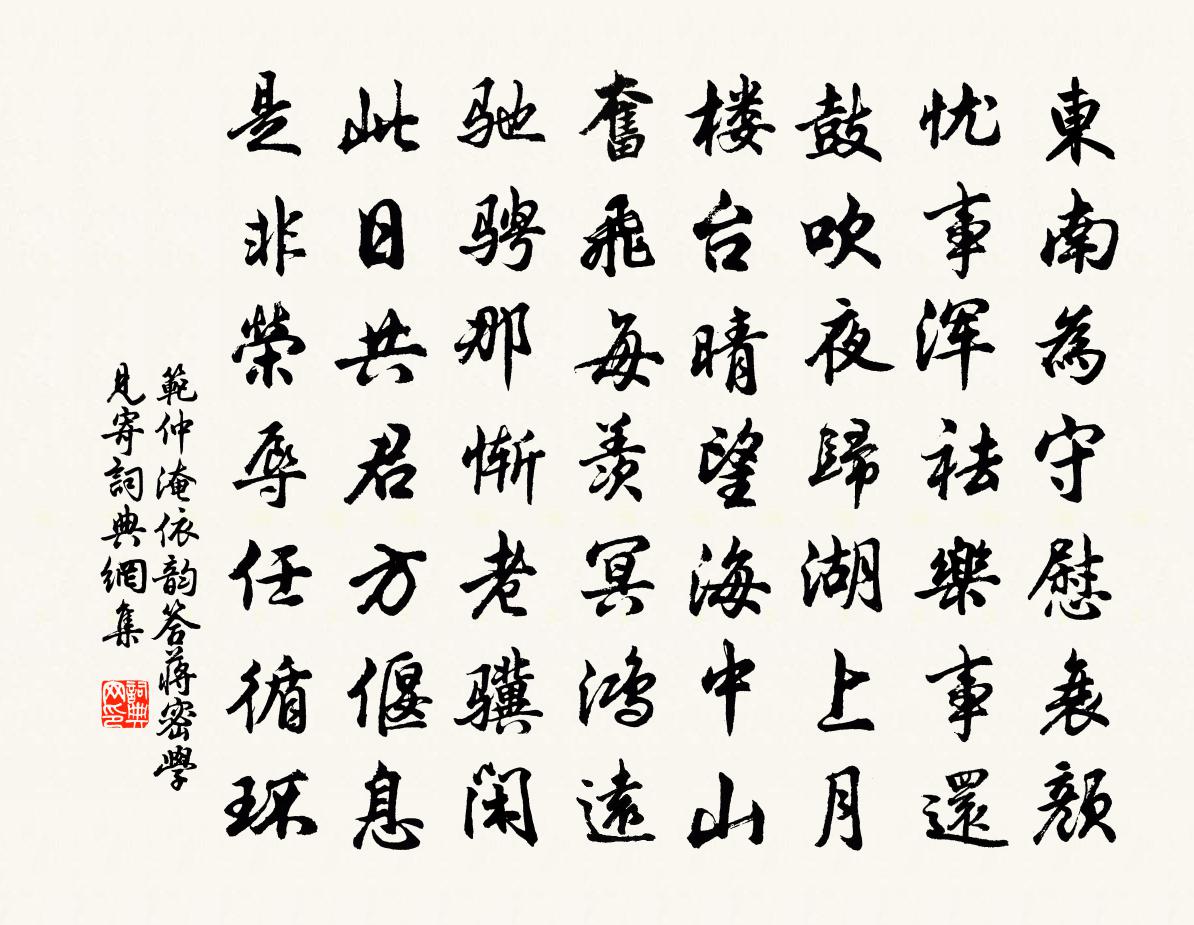 東南為守慰衰顏
忧事浑祛樂事還
鼓吹夜歸湖上月
楼台晴望海中山
奮飛每羨冥鴻遠
驰骋那慚老骥闲
此日共君方偃息
是非榮辱任循环
範仲淹依韵答蔣密學
見寄詞典網集
詞典网印